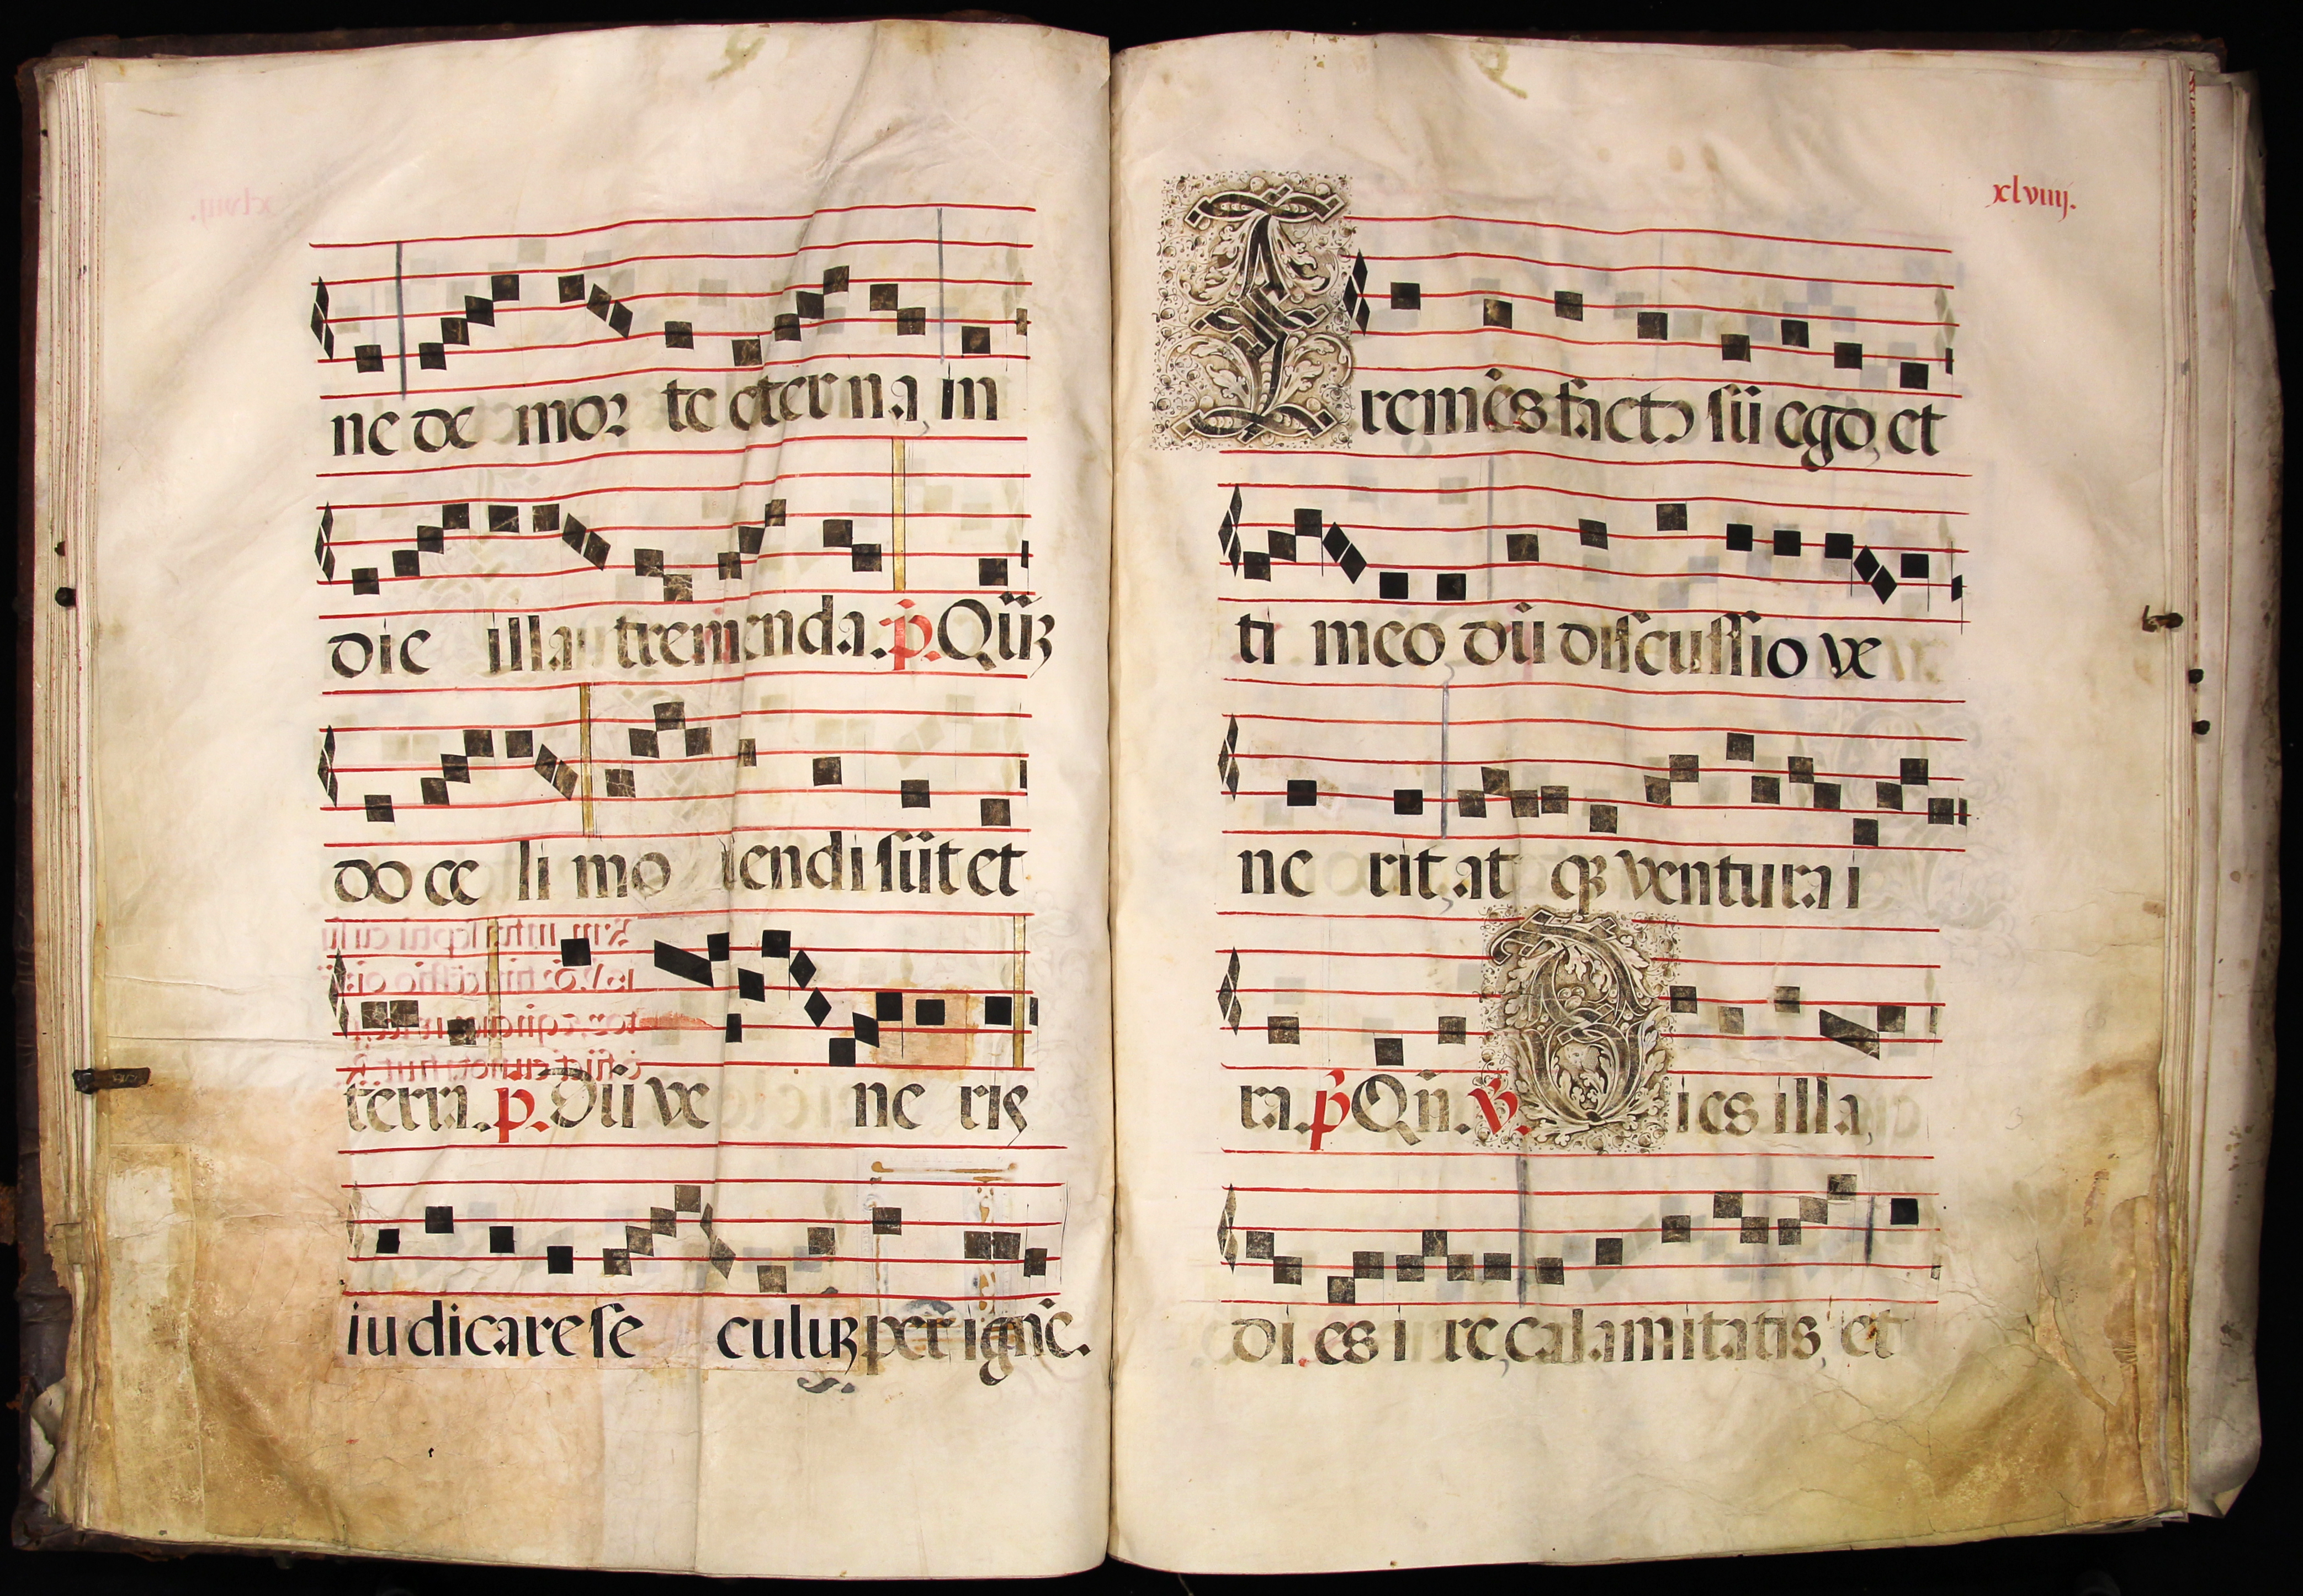 ne de mor te eterna, in
die illa tremenda. p. Qũꝫ
do ce li mo uendi sũt et
terra. p. Dũ ve ne ris
iudicare se culuꝫ per ignẽ.
xlviiij.
Tremẽs factꝰ sũ ego, et
ti meo dũ discussio ve
ne rit, at qꝫ ventura i
ra. p̃ Qñ. v. Dies illa,
di es i re, calamitatis, et